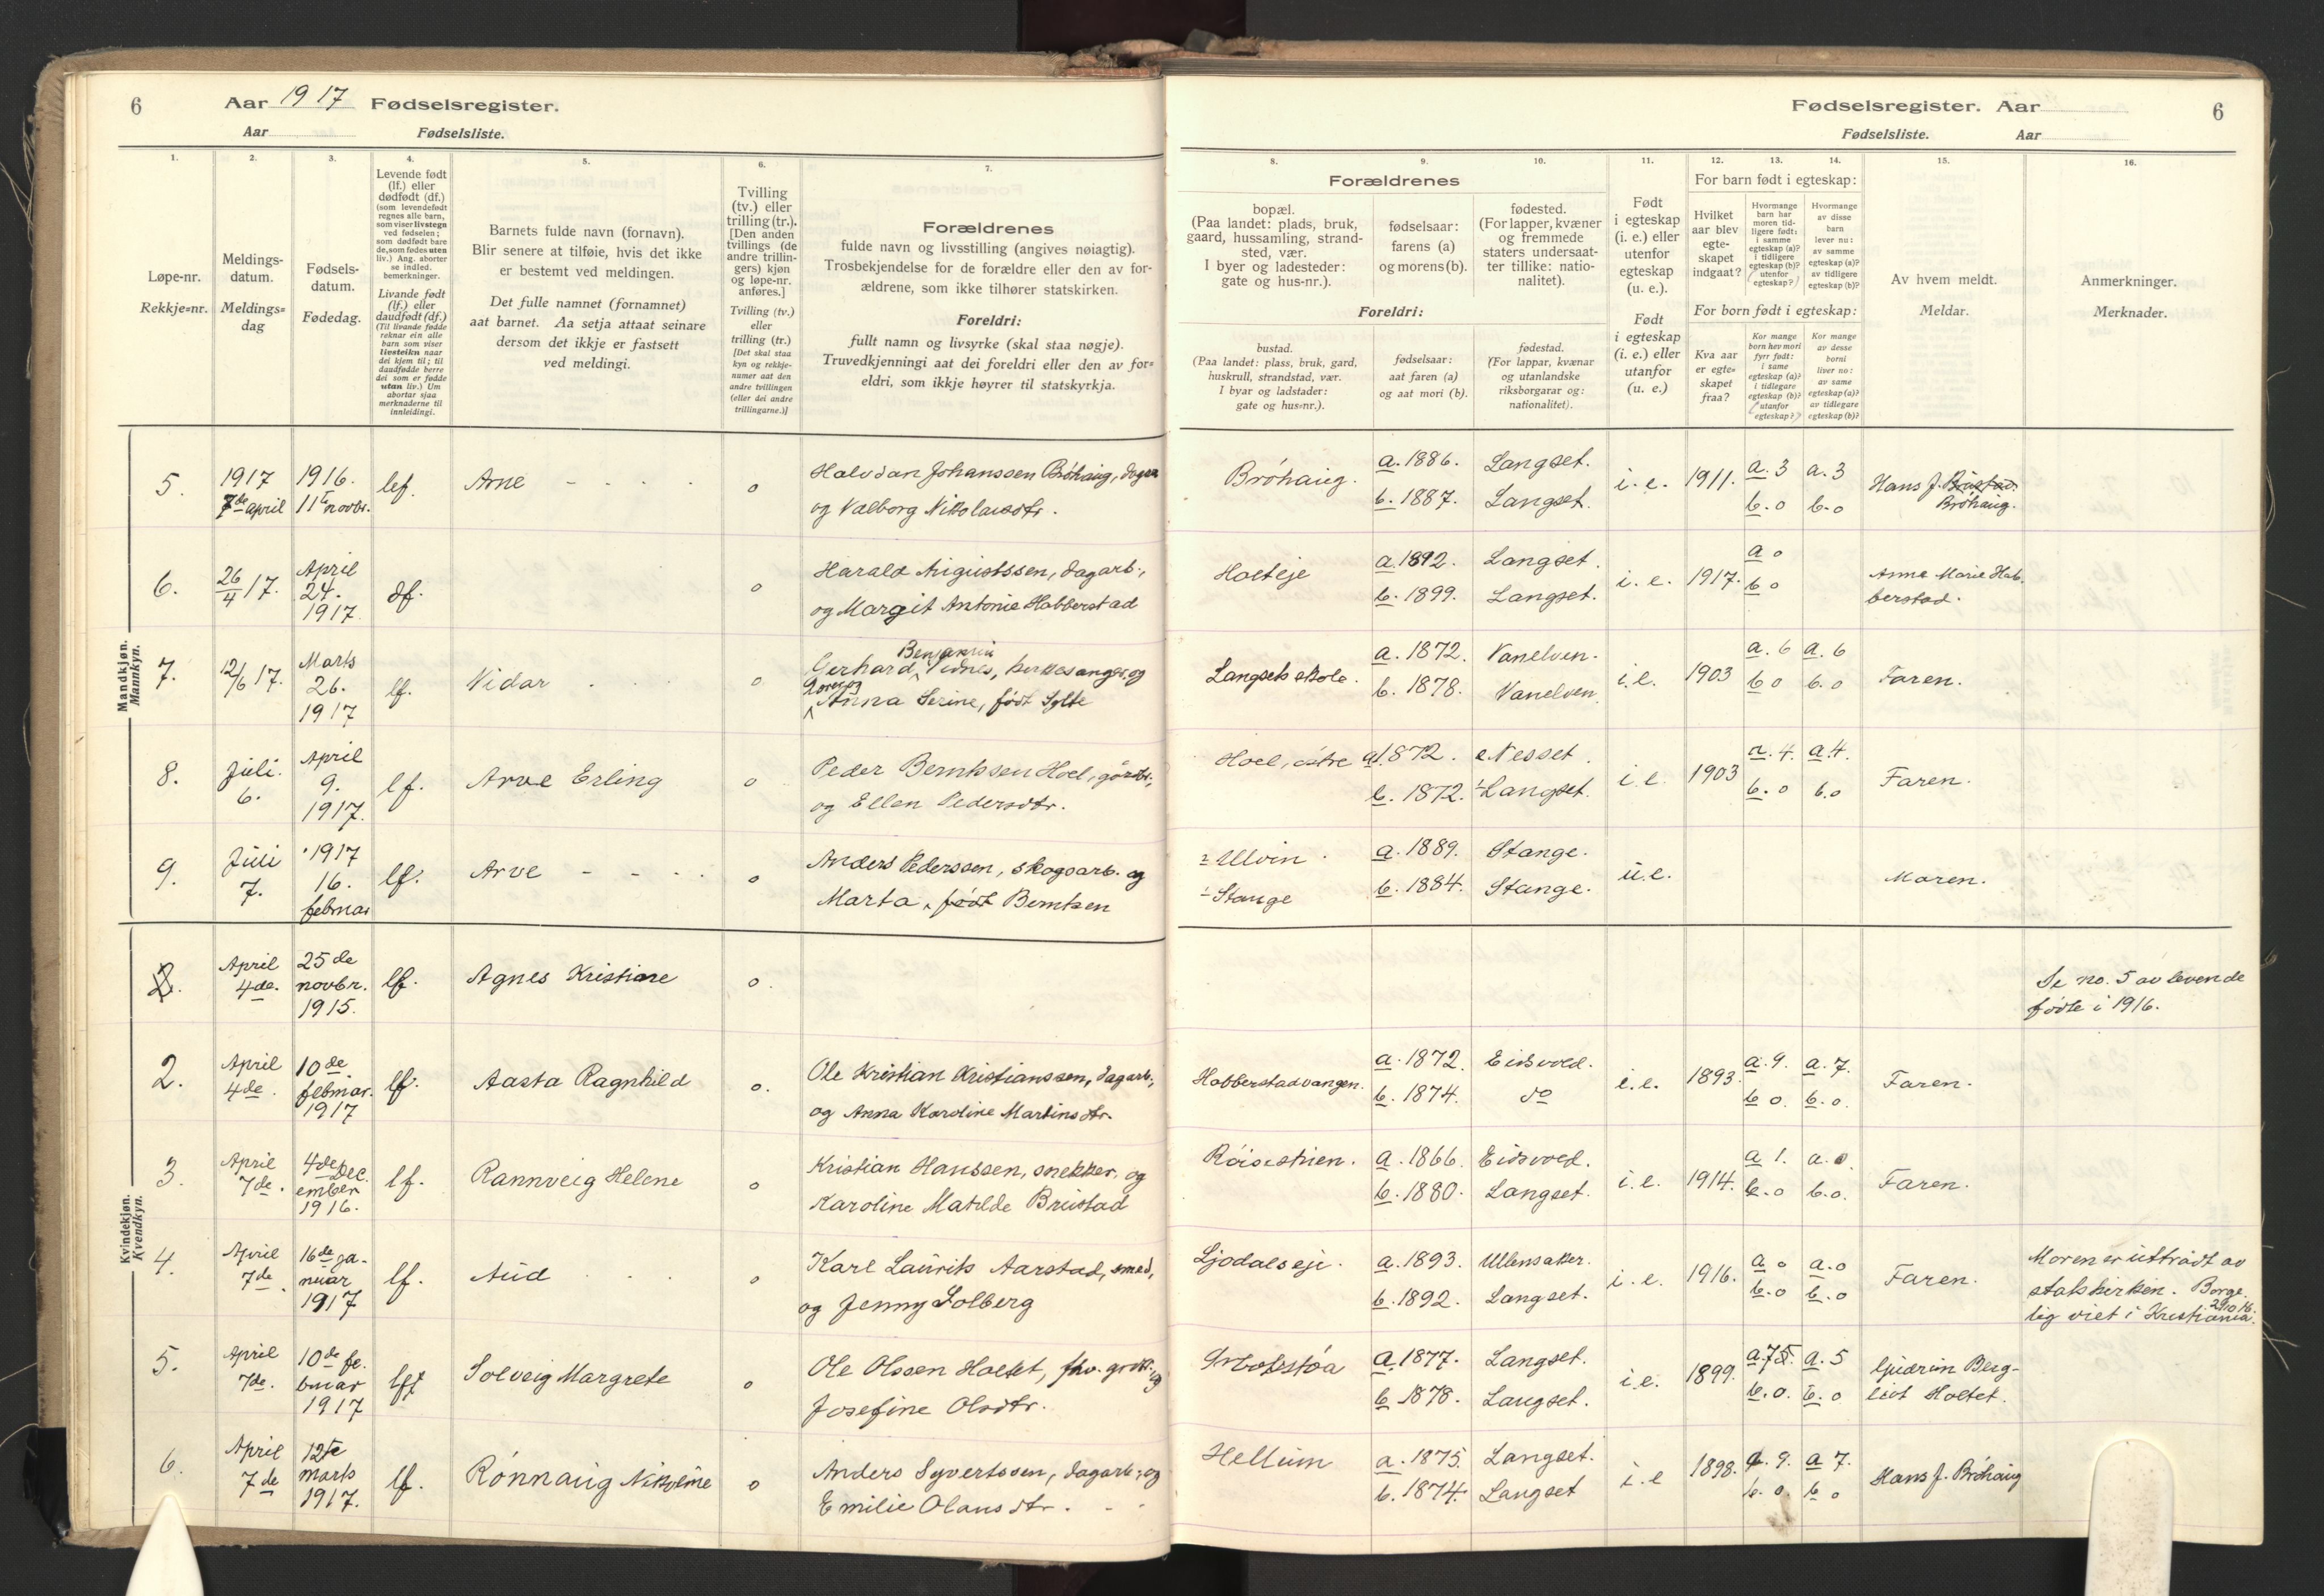 6
Aar 1917 Fødselsregister.
Aar
Fødselsliste.
1.
Løpe-nr.
Rekkje=nr.
2.
Meldings-
datum.
Meldings=
dag
3.
Fødsels-
datum.
Fødedag.
4.
Levende født
(lf.) eller
dødfødt (df.)
(som levendefødt
regnes alle barn,
som viser livstegn
ved fødselen;
som dødfødt bare
de, som fødes uten
liv.) Ang. aborter
se indled.
bemerkninger.
Livande født
(lf.) eller
daudfødt (df.)
(Til livande fødde
reknar ein alle
barn som viser
livsteikn naar
dei kjem til; til
daudfødde berre
dei som er fødde
utan liv.) Um
abortar sjaa
merknaderne til
innleidingi.
5.
Barnets fulde navn (fornavn).
Blir senere at tilføie, hvis det ikke
er bestemt ved meldingen.
Det fulle namnet (fornamnet)
aat barnet. Aa setja attaat seinare
dersom det ikkje er fastsett
ved meldingi.
6.
Tvilling
(tv.) eller
trilling (tr.).
[Den anden
tvillings (de
andre trillin-
gers) kjøn
og løpe-nr.
anføres.]
Tvilling (tv.)
eller
trilling (tr.)
[Det skal staa
kyn og rekkje-
numer aat den
andre tvillingen
(eller dei andre
trillingarne.)]
7.
Forældrenes
fulde navn og livsstilling (angives nøiagtig).
Trosbekjendelse for de forældre eller den av for-
ældrene, som ikke tilhører statskirken.
Foreldri:
fullt namn og livsyrke (skal staa nøgje).
Truvedkjenningi aat dei foreldri eller den av for=
eldri, som ikkje høyrer til statskyrkja.
Mandkjøn.
Mannkyn.
5.
1917
7de april
1916.
11te novbr.
lef.
Arne - - - -
o
Halvdan Johanssen Bröhaug, dagarb
og Valborg Nikolaisdtr.
6.
26/4 17.
April
24.
1917
df.
o
Harald Augustssen, dagarb.,
og Margit Antonie Habberstad
7.
12/6 17.
Marts
26.
1917
lf.
Vidar
o
Benjamin
Gerhard Vidnes, kirkesanger, og
lærer, og
Anna Serine, født Sylte
8.
Juli.
6.
April
9.
1917.
lf.
Arve Erling
o
Peder Berntssen Hoel, gårdbr.,
og Ellen Pedersdtr.
9.
Juli
7.
1917
16.
februar
lf.
Arve - - - -
o
Anders Pederssen, skogsarb. og
Marta, født Berntsen
Kvindekjøn.
Kvendkyn.
2.
April
4de.
25de
novbr.
1915.
lf.
Agnes Kristiane
o.
2.
April
4de.
10de
februar.
1917
lf.
Aasta Ragnhild
o.
Ole Kristian Kristianssen, dagarb.,
og Anna Karoline Martinsdtr.
3.
April
7de.
4de Dec.
ember
1916.
lf.
Rannveig Helene
o
Kristian Hanssen, snekker, og
Karoline Matilde Brustad
4.
April
7de.
16de ja-
nuar
1917
lf.
Aud
o
Karl Laurits Aarstad, smed,
og Jenny Solberg
5.
April
7de.
10de fe.
bruar
1917
lf
Solveig Margrete
o
Ole Olssen Holtet, fhv. grdbr. og
Josefine Olsdtr.
6.
April
7de
12te
marts
1917.
lf.
Rønnaug Nikoline
o
Anders Syvertssen, dagarb., og
Emilie Olausdtr. - -
Fødselsregister. Aar
6
Fødselsliste.
Aar
8.
9.
10.
Forældrenes
bopæl.
(Paa landet: plads, bruk,
gaard, hussamling, strand-
sted, vær.
I byer og ladesteder:
gate og hus-nr.).
fødselsaar:
farens (a)
og morens (b).
fødested.
(For lapper, kvæner
og fremmede
staters undersaat-
ter tillike: natio-
nalitet).
Foreldri:
bustad.
(Paa landet: plass, bruk, gard,
huskrull, strandstad, vær.
I byar og ladstader:
gate og hus=nr.).
fødselsaar:
aat faren (a)
og aat mori (b).
fødestad.
(For lappar, kvænar
og utanlandske
riksborgarar og:
nationalitet).
11.
Født
i egteskap
(i. e.) eller
utenfor
egteskap
(u. e.).
Født
i egteskap
(i. e.) eller
utanfor
(u. e.)
12.
13.
14.
For barn født i egteskap:
Hvilket
aar blev
egte-
skapet
indgaat?
Hvormange
barn har
moren tid-
ligere født:
i samme
egteskap (a)?
i tidligere
egteskap (b)?
utenfor
egteskap?
Hvormange
av disse
barn
lever nu:
av samme
egteskap (a)?
av tidligere
egteskap (b)?
For born født i egteskap:
Kva aar
er egte=
skapet
fraa?
Kor mange
born hev mori
fyrr født:
i same
egteskap (a)?
i tidlegare
egteskap (b)?
utanfor
egteskap?
Kor mange
av desse
borni
liver no:
av same
egteskap (a)?
av tidlegare
egteskap (b)?
15.
Av hvem meldt.
Meldar.
16.
Anmerkninger.
Merknader.
Bröhaug.
a. 1886.
b. 1887.
Langset.
Langset.
i. e.
1911.
a. 3
b. o
a. 3
b. o
Hans J. Brustad.
Bröhaug.
Holteje
a. 1892.
b. 1899.
Langset.
Langset.
i. e.
1917.
a o
b o
Anna Marie Hab.
berstad.
Langset skole.
a. 1872.
b. 1878.
Vanelven.
Vanelven
i. e.
1903
a. 6
b o
a. 6
b. o
Faren.
Hoel, östre
a. 1872.
b. 1872.
Nesset.
Langset.
i. e.
1903
a. 4.
b. o
a 4.
b. o
Faren.
2 Ulvin
1 Stange
a. 1889.
b. 1884.
Stange.
Stange.
u. e.
Moren.
Se no. 5 av levende
fødte i 1916.
Habberstadvangen.
a. 1872.
b. 1874.
Eidsvold.
do
i. e.
1893.
a. 9.
b o.
a. 7.
b. o.
Faren.
a. 1866.
b. 1880.
Eidsvold.
Langset.
i. e.
1914.
a 1.
b. o
a. o
b. o.
Faren.
Ljödalseje.
a. 1893.
b. 1892.
Ullensaker.
Langset.
i. e.
1916.
a o
b. o
a. o
b. o
Faren.
Moren er uttrådt av
statskirken. Borge.
lig viet i Kristiania.
a. 1877.
b 1878.
Langset.
Langset.
i. e.
1899.
b. o.
a. 5
b. o
Gudrun Berg-
liot Holtet.
Hellum
a. 1875.
b. 1874.
Langset.
Langset
i. e
1898.
a. 9.
b. o.
a 7.
b o
Hans J. Bröhaug